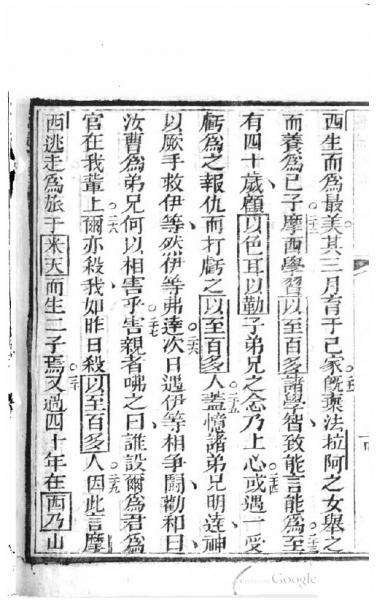 西生而爲最美其三月育于己家旣棄法拉阿之女舉之
而養爲己子摩西學習以至百多諸學智致能言能爲至
有四十歲顧以色耳以勒子弟兄之念乃上心或遇一受
虧爲之報仇而打虧之以至百多人蓋憶諸弟兄明達神
以厥手救伊等然伊等弗達次日遇伊等相爭鬪勸和曰
汝曹爲弟兄何以相害乎害親者咈之曰誰設爾爲君爲
官在我輩上爾亦殺我如昨日殺以至百多人因此言摩
西逃走爲旅于米天而生二子焉又過四十年在西乃山
Google